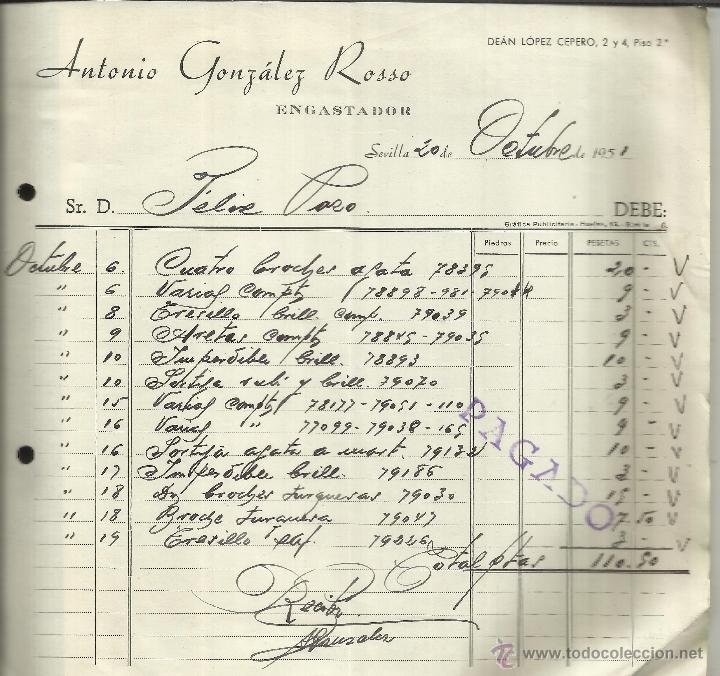 DEÁN LÓPEZ CEPERO, 2 y 4, Piso 2º
Antonio González Rosso
ENGASTADOR
Sevilla 20 de Octubre de 1951
Sr. D. Félix Pozo DEBE:
Gráfica Publicitaria
Piedras Precio PESETAS CTS.
Octubre 6 Cuatro broches agata 78395 20 -
" 6 Varias compts 78898-981-79044 9 -
" 8 Tresillo brill. comp. 79039 3 -
" 9 Aretes compts 78845-79035 9 -
" 10 Imperdible brill. 78893 10 -
" 10 Sortija rubí y brill. 79070 3 -
" 15 Varias compts 78177-79051-110 9 -
" 16 Varias " 77099-79038-165 9 -
" 16 Sortija agata a mart. 79132 10 -
" 17 Imperdible brill. 79186 3 -
" 18 Dos broches turquesas 79030 15 -
" 18 Broche turquesa 79047 7 50
" 19 Tresillo 79226 3 -
Total ptas 110.50
PAGADO
Recibí
AGonzalez
www.todocoleccion.net